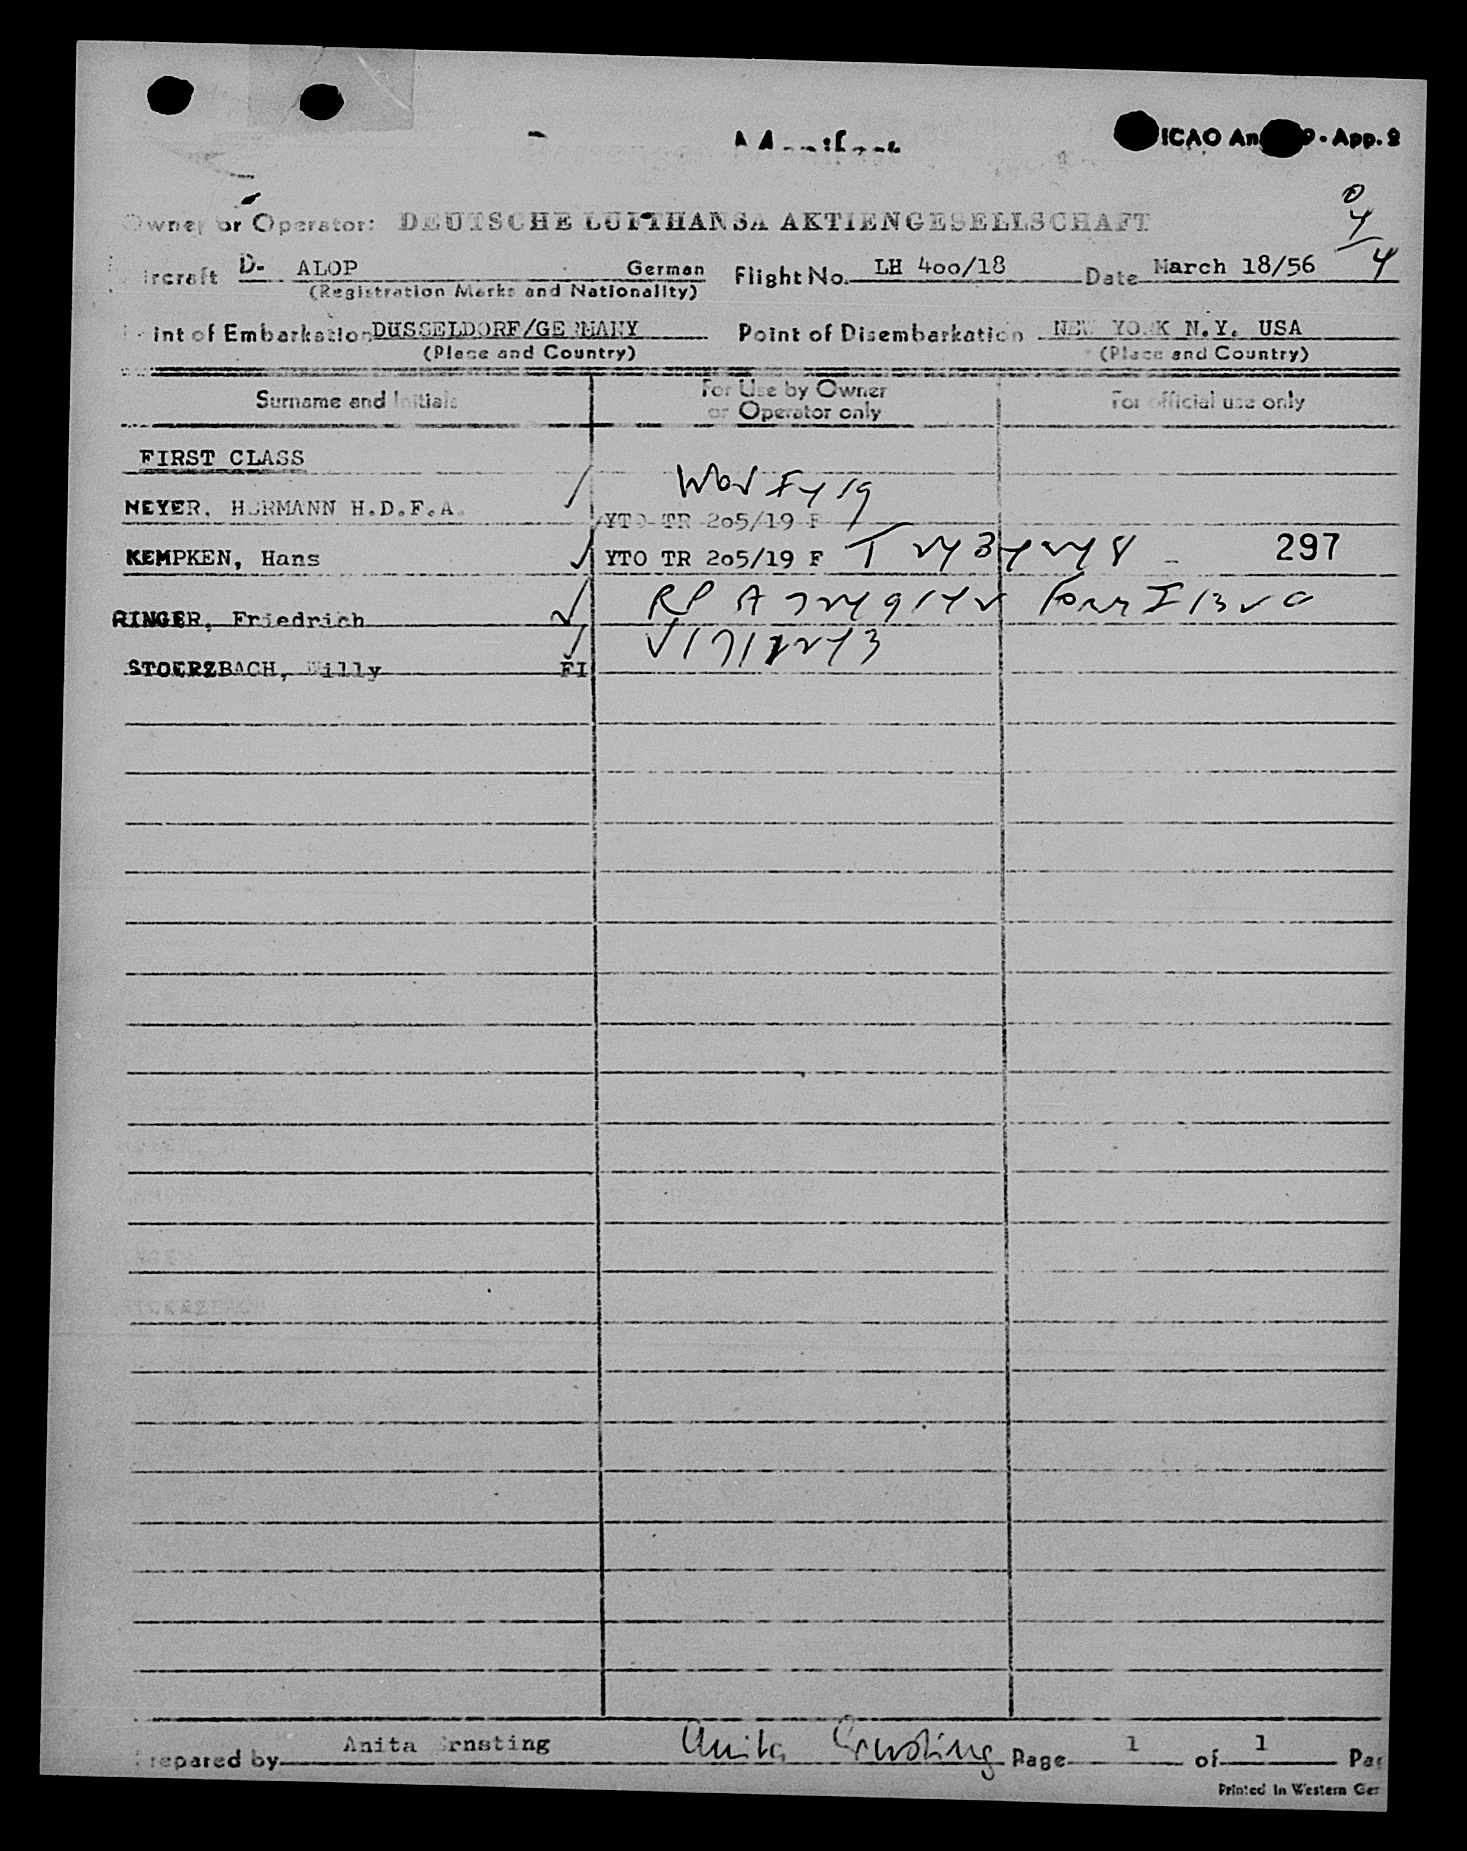 ICAO App. 9
0
4
4
Owner or Operator: DEUTSCHE LUFTHANSA AKTIENGESELLSCHAFT
Aircraft D- ALOP German Flight No. LH 400/18 Date March 18/56
(Registration Marks and Nationality)
Point of Embarkation DUSSELDORF/GERMANY Point of Disembarkation NEW YORK N.Y. USA
(Place and Country) (Place and Country)
Surname and Initials For Use by Owner or Operator only For official use only
FIRST CLASS
MEYER, HERMANN H.D.F.A. YTO TR 205/19 F
KEMPKEN, Hans YTO TR 205/19 F 297
RINGER, Friedrich
STOERZBACH, Willy FI
Prepared by Anita Ernsting Anita Ernsting Page 1 of 1
Printed in Western Ger